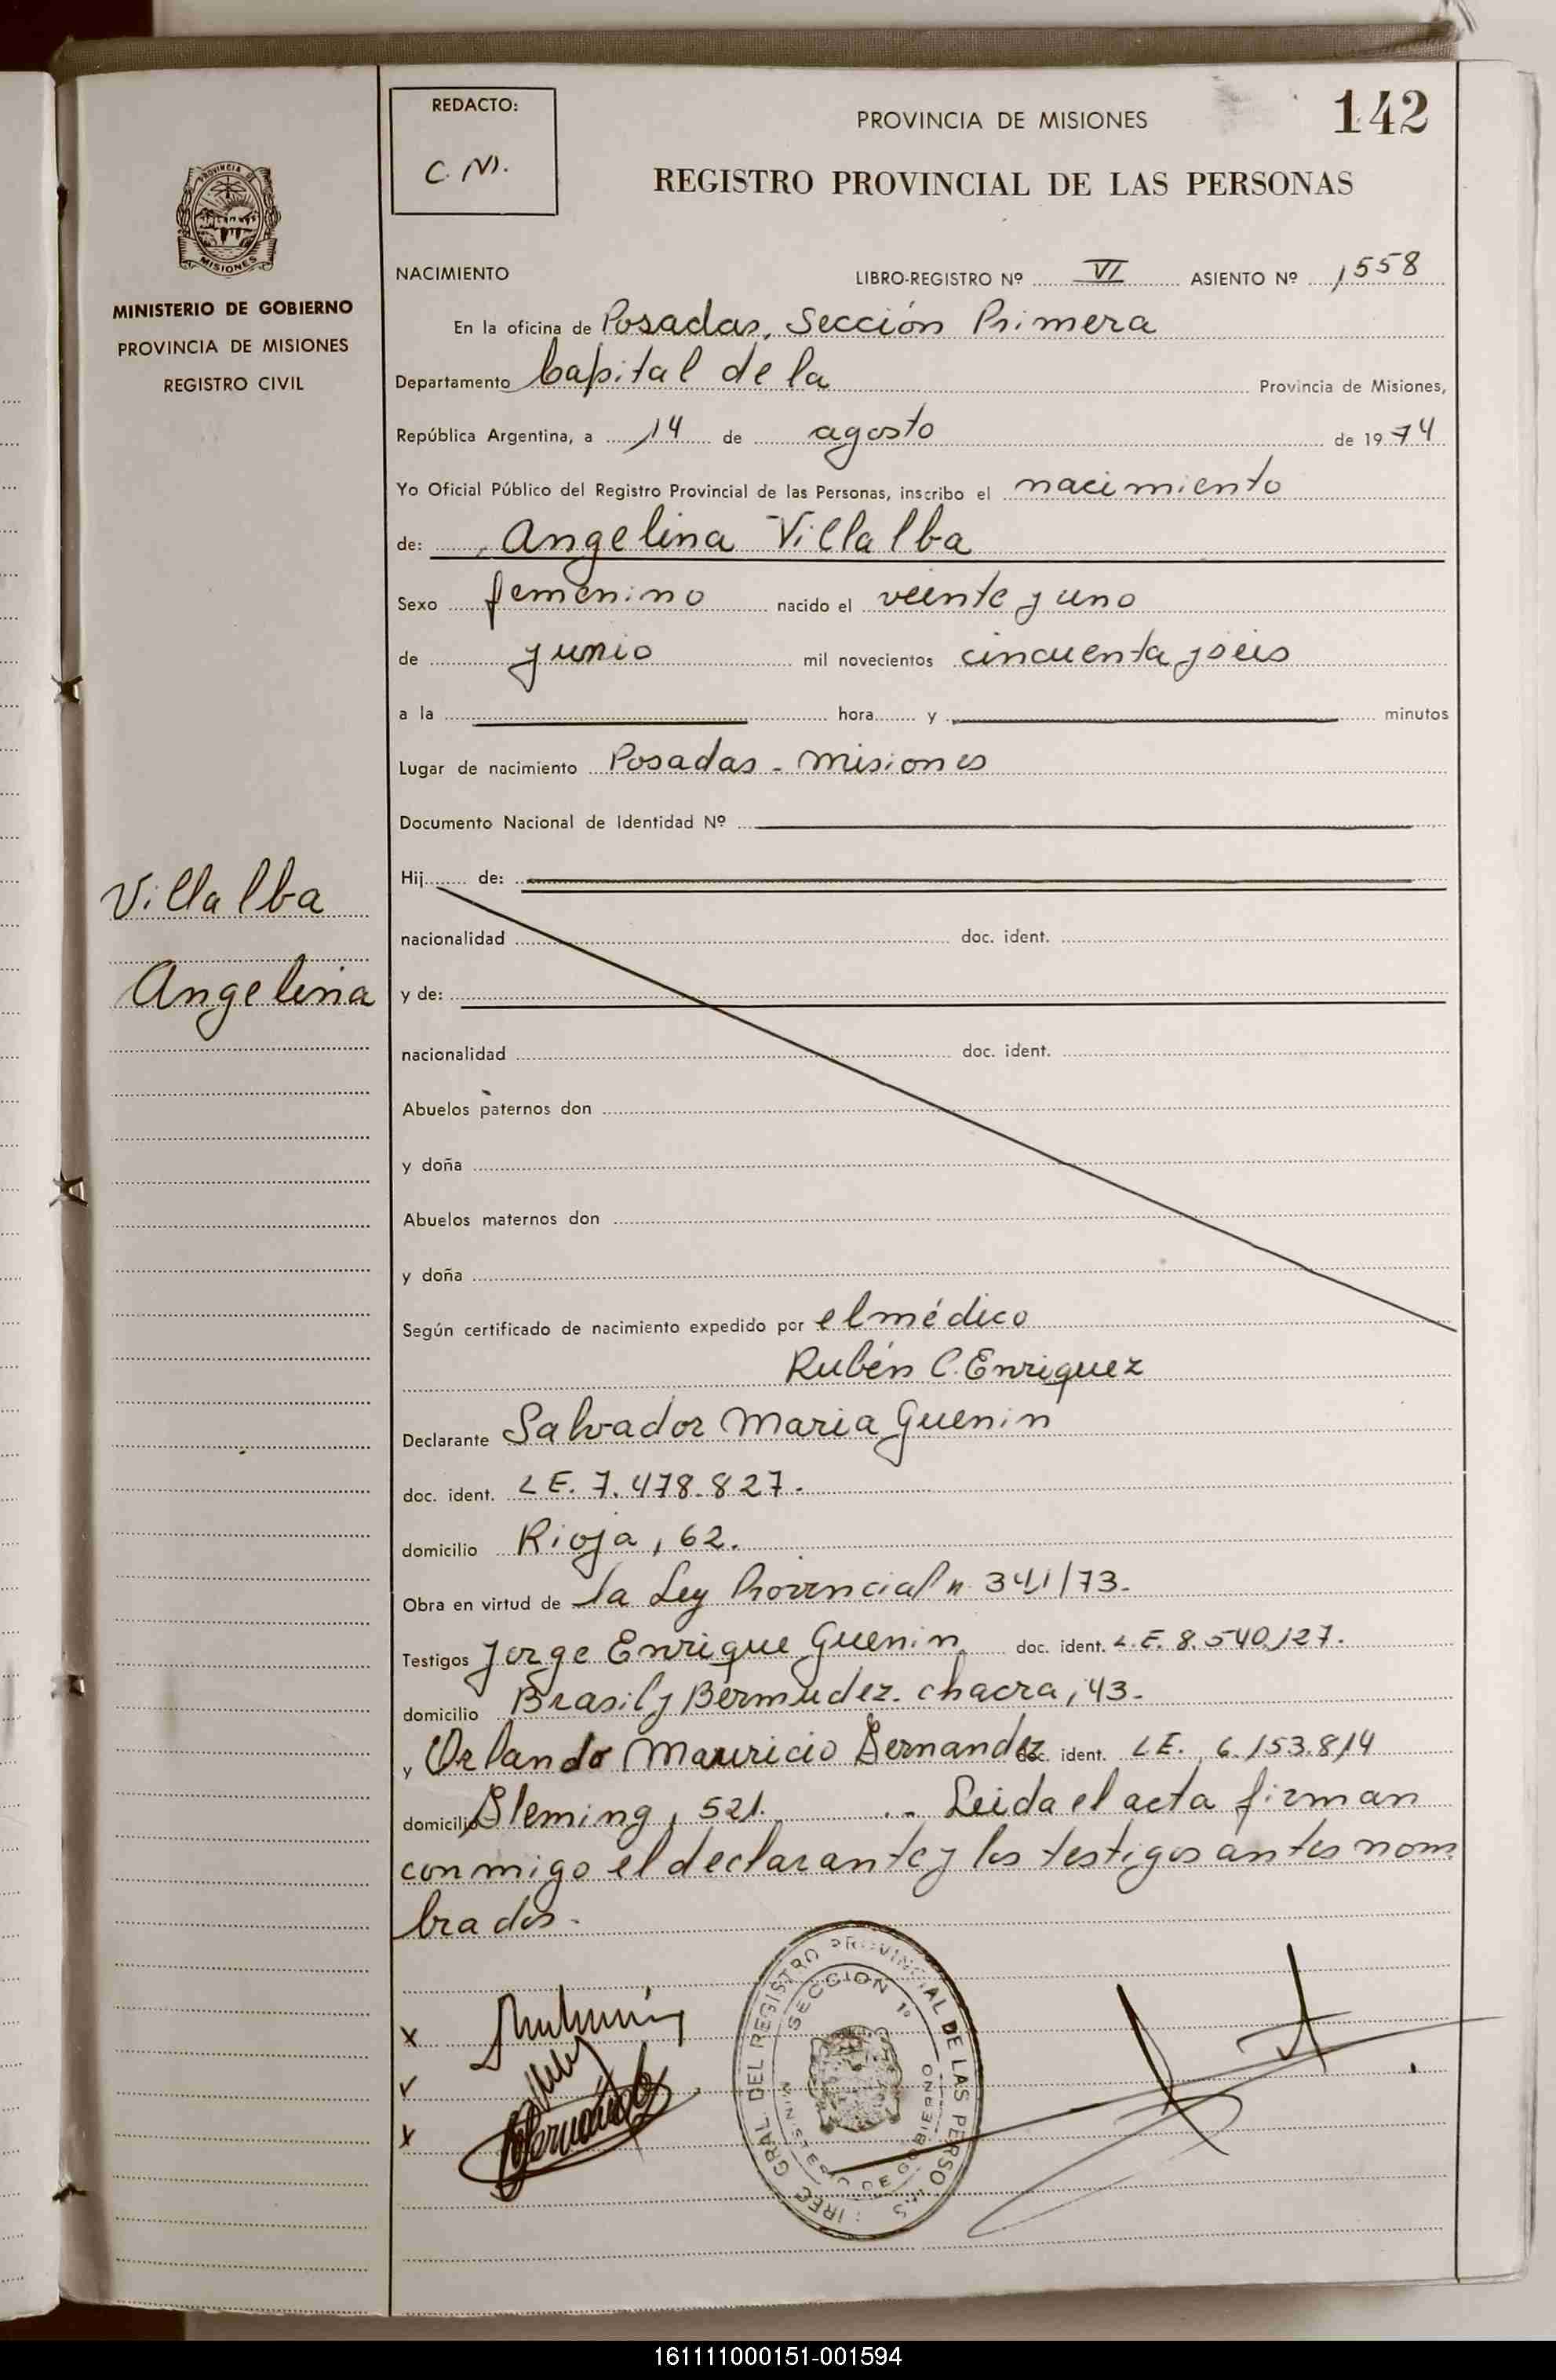 REDACTO:
C. M.
PROVINCIA DE MISIONES
142
REGISTRO PROVINCIAL DE LAS PERSONAS
PROVINCIA DE
MISIONES
MINISTERIO DE GOBIERNO
PROVINCIA DE MISIONES
REGISTRO CIVIL
NACIMIENTO LIBRO-REGISTRO Nº VI ASIENTO Nº 1558
En la oficina de Posadas, Sección Primera
Departamento Capital de la Provincia de Misiones,
República Argentina, a 14 de agosto de 1974
Yo Oficial Público del Registro Provincial de las Personas, inscribo el nacimiento
de: Angelina Villalba
Sexo femenino nacido el veinte y uno
de junio mil novecientos cincuenta y seis
a la hora y minutos
Lugar de nacimiento Posadas - Misiones
Documento Nacional de Identidad Nº
Villalba
Angelina
Hij de:
nacionalidad doc. ident.
y de:
nacionalidad doc. ident.
Abuelos paternos don
y doña
Abuelos maternos don
y doña
Según certificado de nacimiento expedido por el médico
Rubén C. Enriquez
Declarante Salvador Maria Guenin
doc. ident. L E. 7.478.827.
domicilio Rioja, 62.
Obra en virtud de la Ley Provincial n 341/73.
Testigos Jorge Enrique Guenin doc. ident. L.E. 8.540.127.
domicilio Brasil y Bermudez. chacra, 43.
y Orlando Mauricio Fernandez doc. ident. L E. 6.153.814
domicilio Fleming, 521. Leida el acta firman
conmigo el declarante y los testigos antes nom
brados.
GRAL. DEL REGISTRO PROVINCIAL DE LAS PERSO
SECCION 1º
MINISTERIO DE GOBIERNO
161111000151-001594